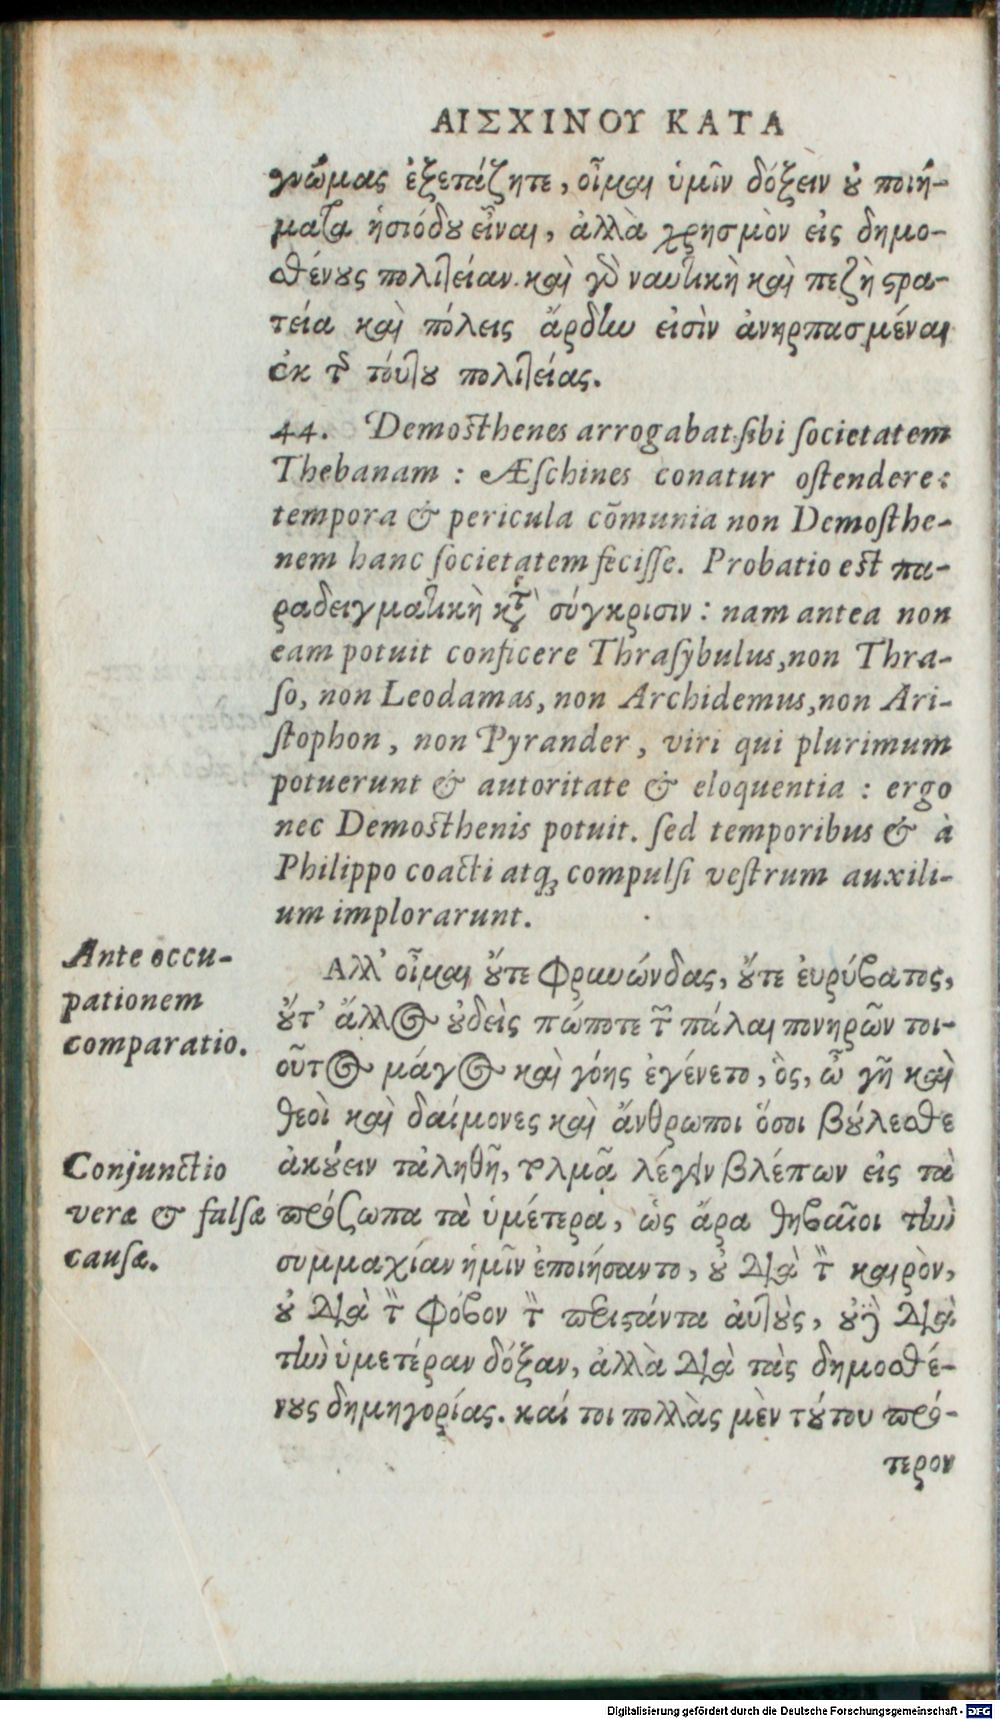 ΑΙΣΧΙΝΟΥ ΚΑΤΑ
γνώμας ἐξετάζητε, οἶμαι ὑμῖν δόξειν ȣ ποιή-
ματα ἡσιόδȣ εἶναι, ἀλλὰ χρησμὸν εἰς δημο-
σθένȣς πολιτείαν. καὶ γὰρ ναυτικὴ καὶ πεζὴ ϛρα-
τεία καὶ πόλεις ἄρδην εἰσὶν ἀνηρπασμέναι
ἐκ τῆς τούτȣ πολιτείας.
44. Demosthenes arrogabat sibi societatem
Thebanam : Æſchines conatur oſtendere:
tempora & pericula cõmunia non Demoſthe-
nem hanc ſocietatem feciſſe. Probatio est πα-
ραδειγματικὴ κατὰ σύγκρισιν : nam antea non
eam potuit conficere Thraſybulus, non Thra-
ſo, non Leodamas, non Archidemus, non Ari-
ſtophon, non Pyrander, viri qui plurimum
potuerunt & autoritate & eloquentia : ergo
nec Demosthenis potuit. ſed temporibus & à
Philippo coacti atq; compulſi veſtrum auxili-
um implorarunt.
Ante occu-
pationem
comparatio.
Αλλ' οἶμαι ȣ̓́τε Φρυνώνδας, ȣ̓́τε ἐυρύβατος,
ȣ̓́τ' ἄλλος ȣ̓δεὶς πώποτε τῶν πάλαι πονηρῶν τοι-
οῦτος μάγος καὶ γόης ἐγένετο, ὃς, ὦ γῆ καὶ
θεοὶ καὶ δαίμονες καὶ ἄνθρωποι ὅσοι βȣ́λεσθε
Conjunctio
veræ & falſæ
cauſæ.
ἀκȣ́ειν τἀληθῆ, τολμᾷ λέγειν βλέπων εἰς τὰ
πρόσωπα τὰ ὑμέτερα, ὡς ἄρα θηβαῖοι τὴν
συμμαχίαν ἡμῖν ἐποιήσαντο, ȣ̓ διὰ τὸν καιρὸν,
ȣ̓ διὰ τὸν φόβον τὸν περιϛάντα ἀυτȣ̀ς, ȣ̓δὲ διὰ
τὴν ὑμετέραν δόξαν, ἀλλὰ διὰ τὰς δημοσθέ-
νȣς δημηγορίας. καί τοι πολλὰς μὲν τȣ́του πρό-
τερον
Digitalisierung gefördert durch die Deutsche Forschungsgemeinschaft - DFG